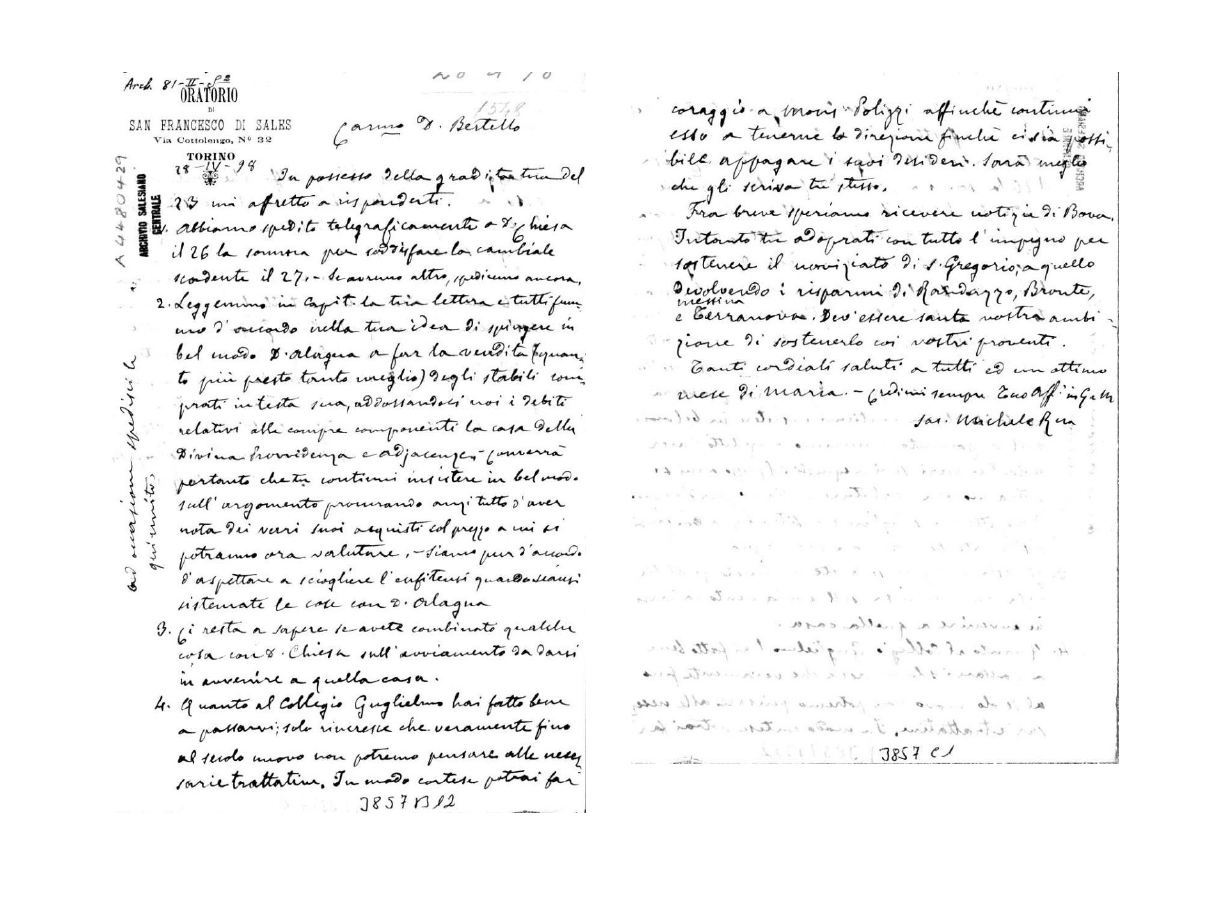 Arch. 81-II-
ORATORIO
DI
SAN FRANCESCO DI SALES
Via Cottolengo, Nº 32
TORINO
28-IV-98
A4480429
ARCHIVIO SALESIANO
CENTRALE
Carmo D. Bertello
In possesso della gradita tua del
23 mi affretto a risponderti.
1. Abbiamo spedito telegraficamente a D. Chiesa
il 26 la somma per soddisfare la cambiale
scadente il 27. - Se avremo altro, spediremo ancora.
2. Leggemmo in Capit. la tua lettera e tutti fum
mo d'accordo nella tua idea di spingere in
bel modo D. Alagna a far la vendita (quan
to più presto tanto meglio) degli stabili com
prati in testa sua, addossandoci noi i debiti
relativi alle compre componenti la casa della
Divina Provvidenza e adjacenze. - Converrà
pertanto che tu continui insistere in bel modo
sull'argomento procurando anzi tutto d'aver
nota dei varri suoi acquisti col prezzo a cui si
potranno ora valutare. - Siamo pur d'accordo
d'aspettare a sciogliere l'enfiteusi quando sieansi
sistemate le cose con D. Alagna
3. Ci resta a sapere se avete combinato qualche
cosa con D. Chiesa sull'avviamento da darsi
in avvenire a quella casa.
4. Quanto al Collegio Guglielmo hai fatto bene
a passarvi; solo rincresce che veramente fino
al secolo nuovo non potremo pensare alle neces
sarie trattative. In modo cortese potrai far
ad occasione spedisci le
qui unite
3857 B12
coraggio a Mons. Polizzi affinchè continui
esso a tenerne la direzione finchè ci sia possi-
bile appagare i suoi desideri. Sarà meglio
che gli scriva tu stesso.
Fra breve speriamo ricevere notizie di Bova.
Intanto tu adoprati con tutto l'impegno per
sostenere il noviziato di S. Gregorio, a quello
devolvendo i risparmi di Randazzo, Bronte,
Messina
e Terranova. Dev'essere santa vostra ambi-
zione di sostenerlo coi vostri proventi.
Tanti cordiali saluti a tutti ed un ottimo
mese di Maria. - Credimi sempre Tuo Aff. in G. e M.
Sac. Michele Rua
3857 C1